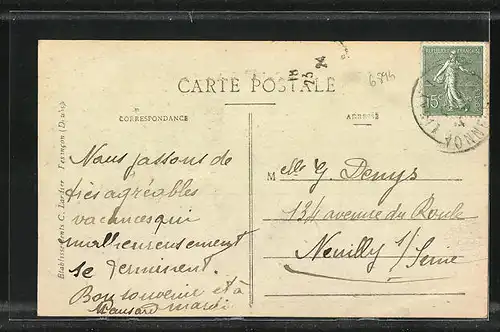 CARTE POSTALE
CORRESPONDANCE
ADRESSE
REPUBLIQUE FRANÇAISE
15
18
23
24
Nous passons de
très agréables
vacances qui
malheureusement
se terminent.
Bon souvenir et à
mardi
Melle G. Denys
134 avenue du Roule
Neuilly s/
Seine
Etablissements C. Lardier - Besançon (Doubs)